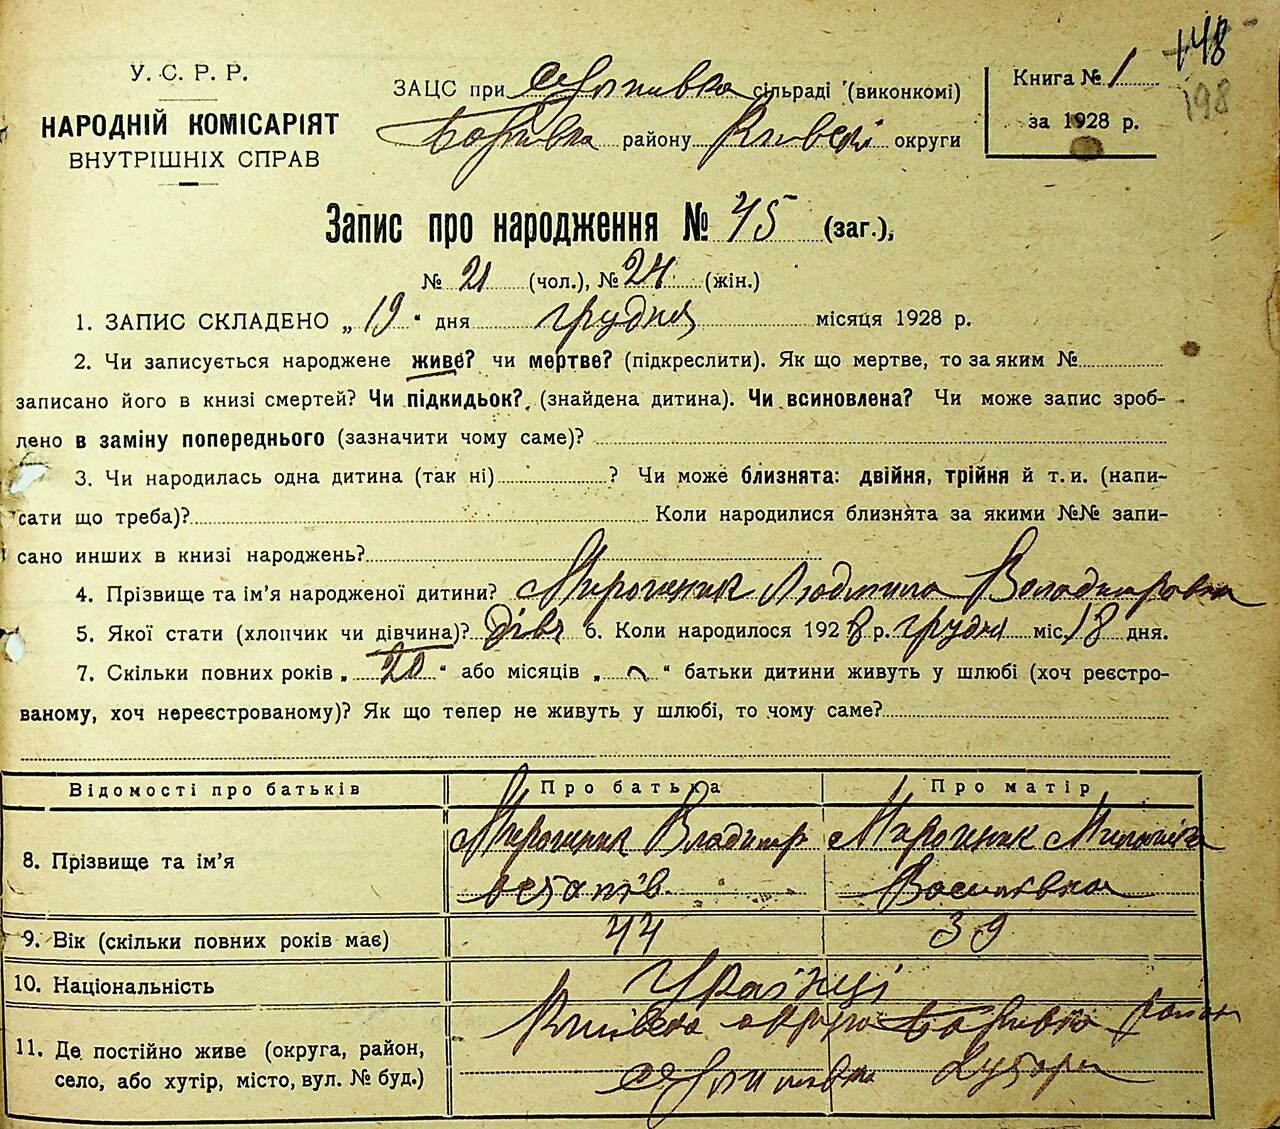 +48
198
У. С. Р. Р.
НАРОДНІЙ КОМІСАРІЯТ
ВНУТРІШНІХ СПРАВ
ЗАЦС при сільраді (виконкомі)
району Київські округи
Книга № 1
за 1928 р.
Запис про народження № 45 (заг.),
№ 21 (чол.), № 24 (жін.)
1. ЗАПИС СКЛАДЕНО „ 19 “ дня грудня місяця 1928 р.
2. Чи записується народжене живе? чи мертве? (підкреслити). Як що мертве, то за яким №
записано його в книзі смертей? Чи підкидьок? (знайдена дитина). Чи всиновлена? Чи може запис зроб-
лено в заміну попереднього (зазначити чому саме)?
3. Чи народилась одна дитина (так ні) ? Чи може близнята: двійня, трійня й т. и. (напи-
сати що треба)? Коли народилися близнята за якими №№ запи-
сано инших в книзі народжень?
4. Прізвище та ім’я народженої дитини? Мирошник Людмила Володимировна
5. Якої стати (хлопчик чи дівчина)? дівч 6. Коли народилося 1928 р. грудня міс. 18 дня.
7. Скільки повних років „ 20 “ або місяців „ “ батьки дитини живуть у шлюбі (хоч реєстро-
ваному, хоч нереєстрованому)? Як що тепер не живуть у шлюбі, то чому саме?
Відомості про батьків Про батька Про матір
8. Прізвище та ім’я Мирошник Владимир Мирошник
Остапів Василівна
9. Вік (скільки повних років має) 44 39
10. Національність Українці
11. Де постійно живе (округа, район, Київська округа район
село, або хутір, місто, вул. № буд.) Хутори